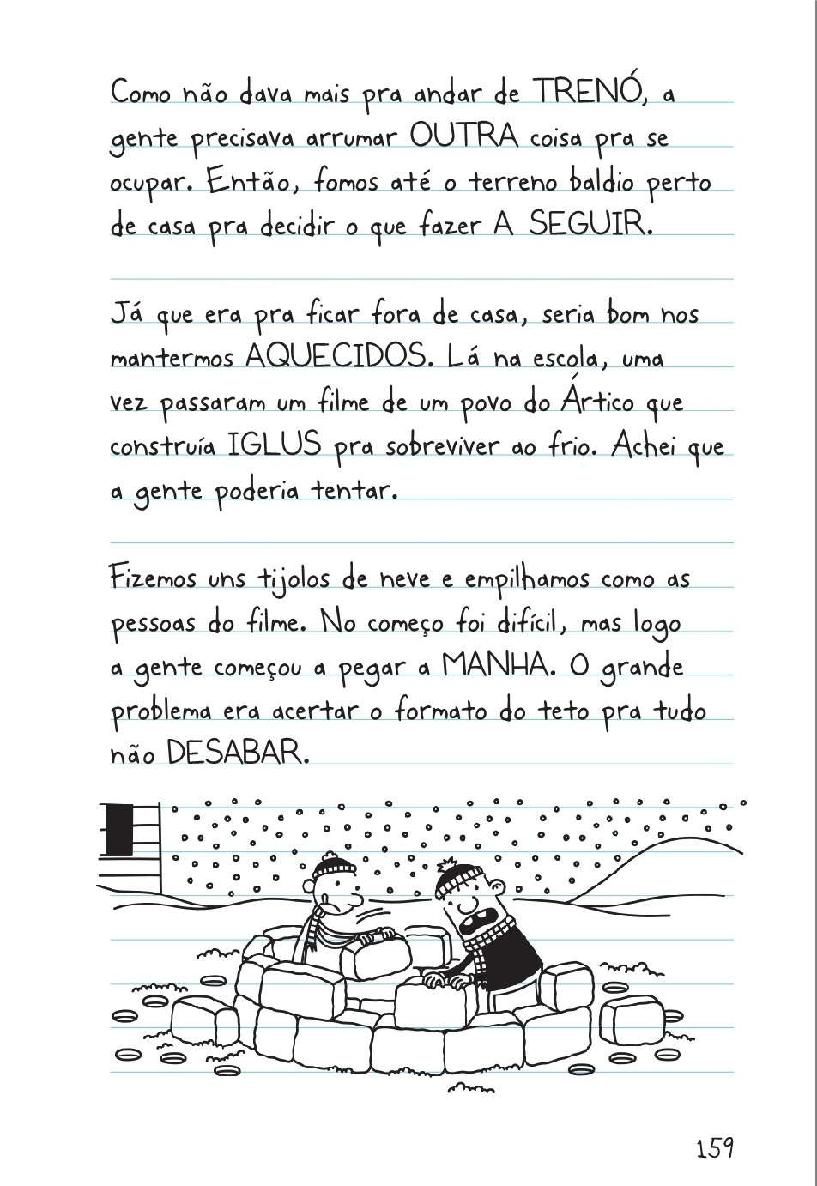 Como não dava mais pra andar de TRENÓ, a
gente precisava arrumar OUTRA coisa pra se
ocupar. Então, fomos até o terreno baldio perto
de casa pra decidir o que fazer A SEGUIR.
Já que era pra ficar fora de casa, seria bom nos
mantermos AQUECIDOS. Lá na escola, uma
vez passaram um filme de um povo do Ártico que
construía IGLUS pra sobreviver ao frio. Achei que
a gente poderia tentar.
Fizemos uns tijolos de neve e empilhamos como as
pessoas do filme. No começo foi difícil, mas logo
a gente começou a pegar a MANHA. O grande
problema era acertar o formato do teto pra tudo
não DESABAR.
159